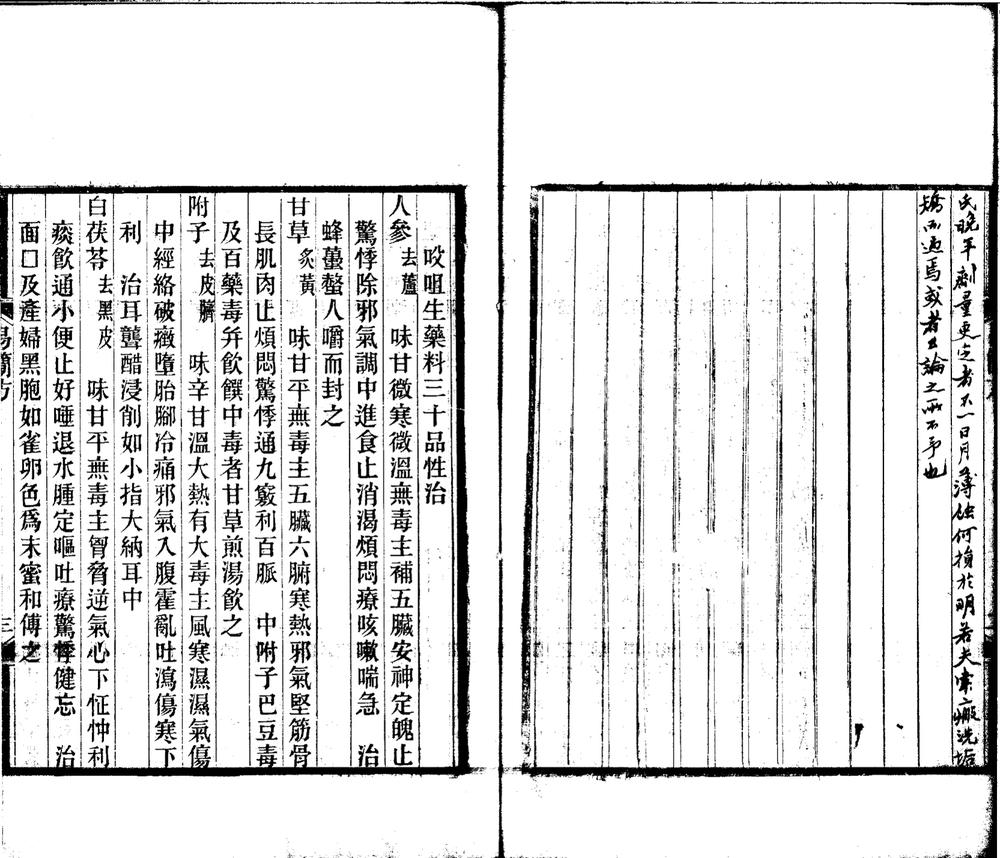 氏晚年劑量更定者不一日月薄蝕何損於明若夫索瘢洗垢
矯而過焉或者公論之所不予也
㕮咀生藥料三十品性治
人參去蘆 味甘微寒微溫無毒主補五臟安神定魄止
驚悸除邪氣調中進食止消渴煩悶療咳嗽喘急 治
蜂蠆螫人嚼而封之
甘草炙黃 味甘平無毒主五臟六腑寒熱邪氣堅筋骨
長肌肉止煩悶驚悸通九竅利百脈 中附子巴豆毒
及百藥毒幷飲饌中毒者甘草煎湯飲之
附子去皮臍 味辛甘溫大熱有大毒主風寒濕濕氣傷
中經絡破癥墮胎腳冷痛邪氣入腹霍亂吐瀉傷寒下
利 治耳聾醋浸削如小指大納耳中
白茯苓去黑皮 味甘平無毒主胷脅逆氣心下怔忡利
痰飲通小便止好唾退水腫定嘔吐療驚悸健忘 治
面□及產婦黑胞如雀卵色爲末蜜和傅之
易簡方 三